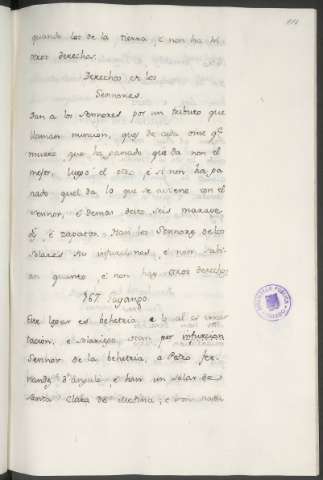 quando los de la tierra, e non ha hi
otros derechos.
Derechos de los
Sennores.
Dan a los sennores por un tributo que
llaman nuncion, ques de cada ome q^e
muere que ha ganado quel da non el
mejor, luego el otro, e si non ha ga
nado quel da lo que se aviene con el
sennor, e demas desto, seis marave
e zapatos. Dan los sennores de los
solares su infurciones, e non sabi
an quanto, e non hay otros derechos
367. Pagango
Este logar es behetria e
tacion, e Dan por infurcion
Sennor de la behetria, a Pero Fer
randz d'angulo e han un solar de
Santa Clara de Medina; e non